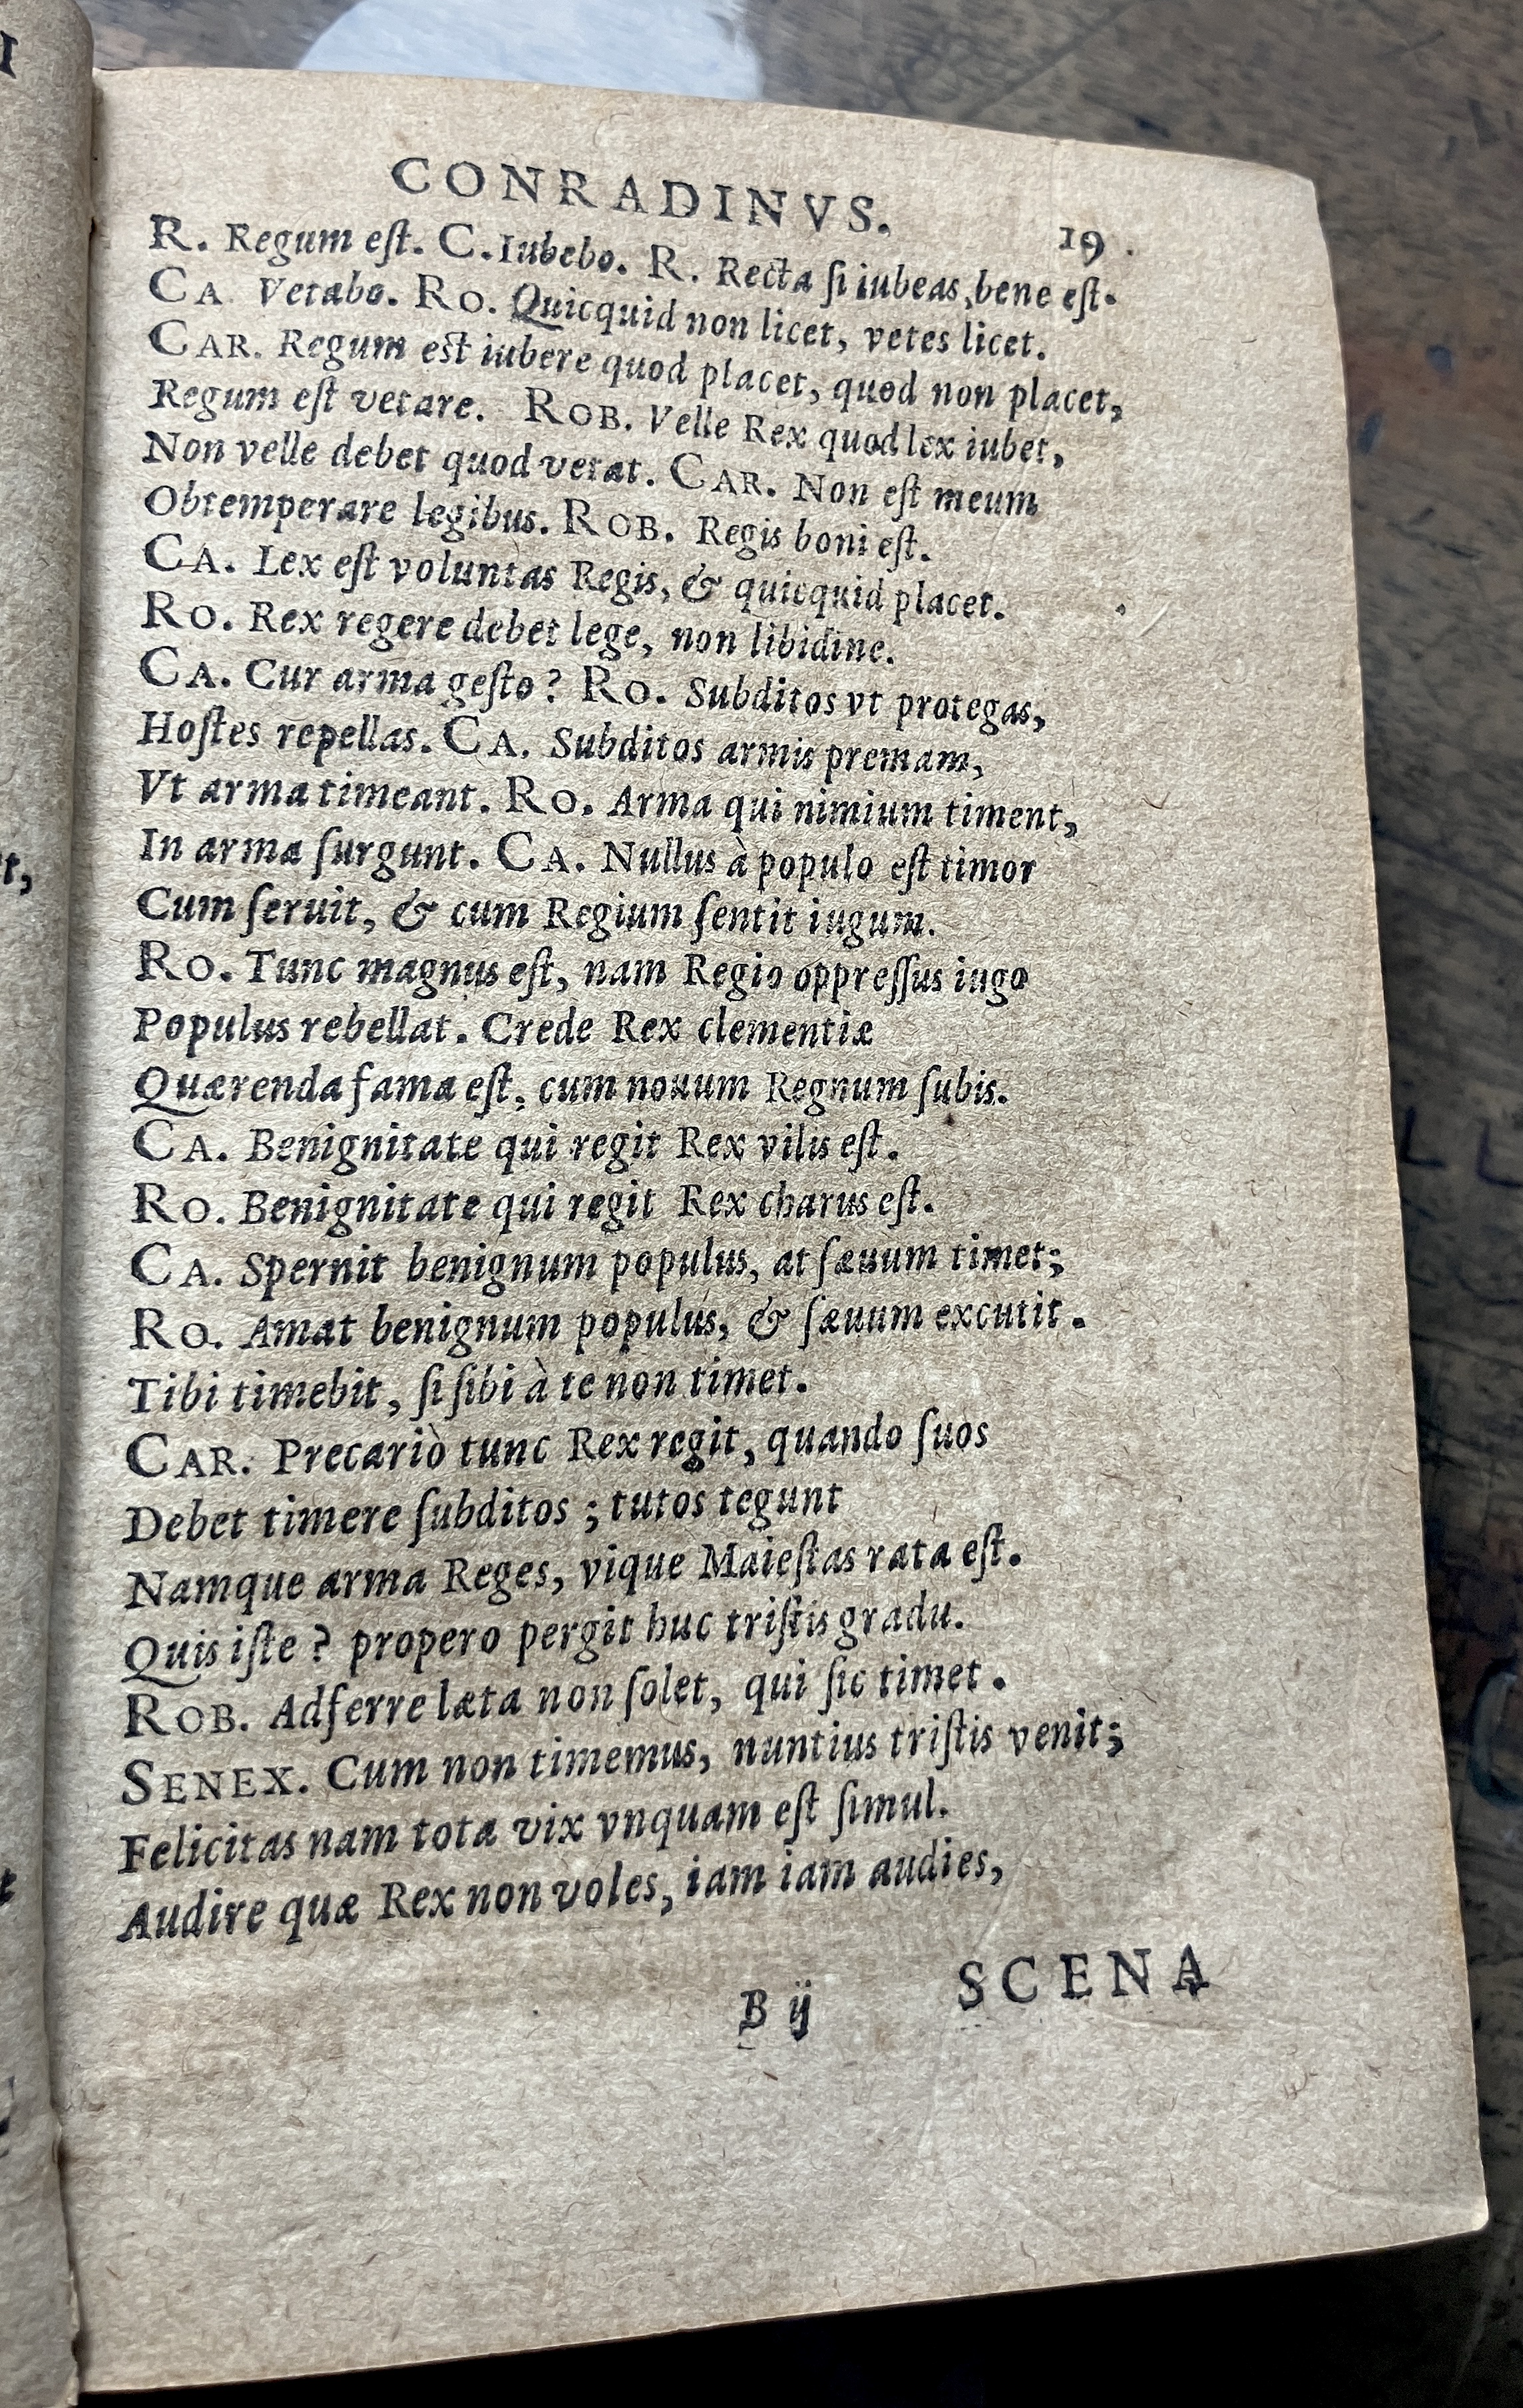 CONRADINVS. 19
R. Regum eſt. C. Iubebo. R. Recta ſi iubeas, bene eſt.
CA. Vetabo. RO. Quicquid non licet, vetes licet.
CAR. Regum eſt iubere quod placet, quod non placet,
Regum eſt vetare. ROB. Velle Rex quod lex iubet,
Non velle debet quod vetat. CAR. Non eſt meum
Obtemperare legibus. ROB. Regis boni eſt.
CA. Lex eſt voluntas Regis, & quicquid placet.
RO. Rex regere debet lege, non libidine.
CA. Cur arma geſto? RO. Subditos vt protegas,
Hoſtes repellas. CA. Subditos armis premam,
Vt arma timeant. RO. Arma qui nimium timent,
In arma ſurgunt. CA. Nullus à populo eſt timor
Cum ſeruit, & cum Regium ſentit iugum.
RO. Tunc magnus eſt, nam Regio oppreſſus iugo
Populus rebellat. Crede Rex clementiæ
Quærenda fama eſt, cum nouum Regnum ſubis.
CA. Benignitate qui regit Rex vilis eſt.
RO. Benignitate qui regit Rex charus eſt.
CA. Spernit benignum populus, at ſæuum timet;
RO. Amat benignum populus, & ſæuum excutit.
Tibi timebit, ſi ſibi à te non timet.
CAR. Precariò tunc Rex regit, quando ſuos
Debet timere ſubditos; tutos tegunt
Namque arma Reges, vique Maieſtas rata eſt.
Quis iſte? propero pergit huc triſtis gradu.
ROB. Adferre læta non ſolet, qui ſic timet.
SENEX. Cum non timemus, nuntius triſtis venit;
Felicitas nam tota vix vnquam eſt ſimul.
Audire quæ Rex non voles, iam iam audies,
B ij SCENA